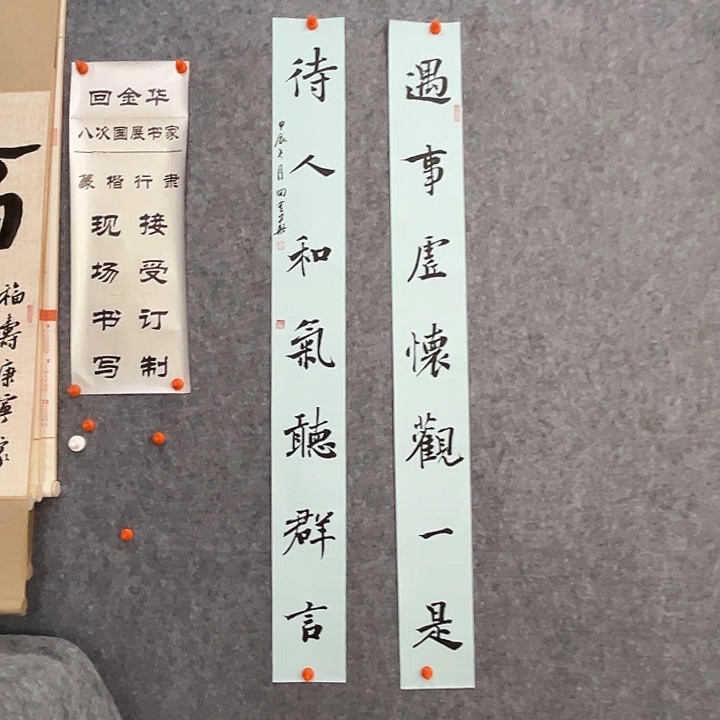 遇事虚懷觀一是
待人和氣聽群言
甲辰 月 回金华
回金华
八次国展书家
篆楷行隶
接受订制
现场书写
福壽康寧